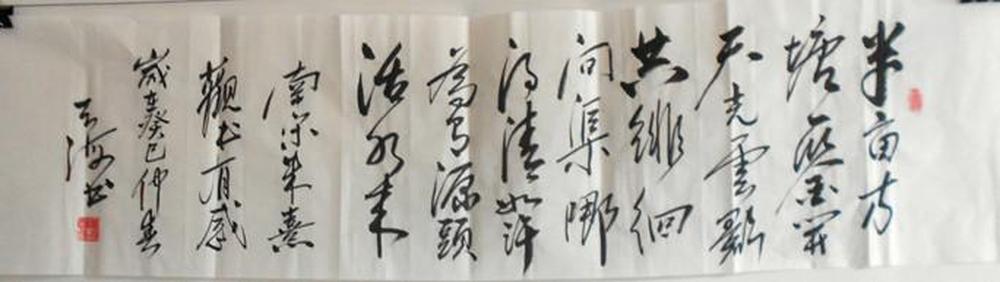 半亩方
塘一鉴开
天光云影
共徘徊
问渠哪
得清如许
为有源頭
活水来
南宋朱熹
觀书有感
歲在癸巳仲春
河书